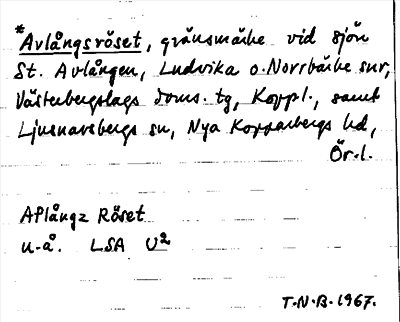 *Avlångsröset, gränsmärke vid sjön
St. Avlången, Ludvika o. Norrbärke snr,
Västerbergslags doms. tg, Koppl., samt
Ljusnarsbergs sn, Nya Kopparbergs hd,
Ör.l.
Aflångz Röset
u.å. LSA U2
T.N.B. 1967.